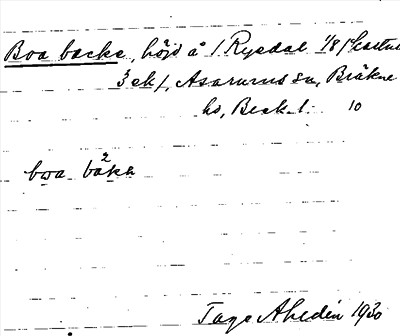 Boa backe, höjd å / Rysdal 1/8 / kartan
3 ek /, Asarums sn, Bräkne
hd, Blek. l. 10
boa bakə 2
Tage Ahedin 1930